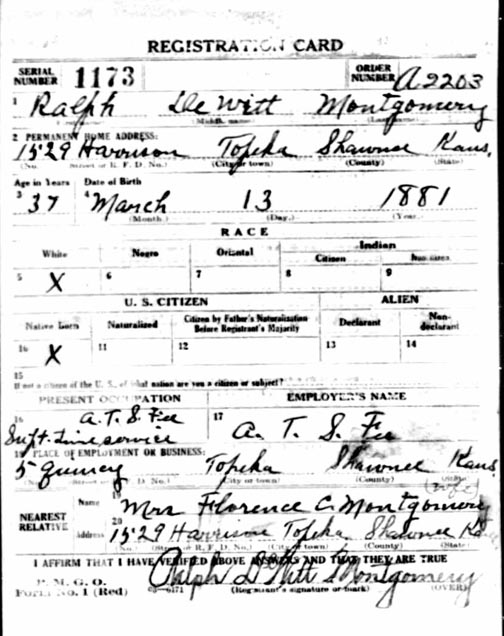 REGISTRATION CARD
SERIAL NUMBER 1173 ORDER NUMBER A2203
1 Ralph De Witt Montgomery
(Middle name)
2 PERMANENT HOME ADDRESS:
1529 Harrison Topeka Shawnee Kans.
(No. Street or R. F. D. No.) (City or town) (County) (State)
Age in Years Date of Birth
3 37 4 March 13 1881
(Month.) (Day.) (Year.)
RACE
White Negro Oriental Indian
Citizen Noncitizen
5 X 6 7 8 9
U. S. CITIZEN ALIEN
Native Born Naturalized Citizen by Father's Naturalization Before Registrant's Majority Declarant Non-declarant
10 X 11 12 13 14
15
If not a citizen of the U. S., of what nation are you a citizen or subject?
PRESENT OCCUPATION EMPLOYER'S NAME
16 A. T. S. Fee 17 A. T. S. Fe
Supt. service
18 PLACE OF EMPLOYMENT OR BUSINESS:
5 Quincy Topeka Shawnee Kans
(No. D. No.) (City or town) (County) (State)
(wife)
NEAREST RELATIVE Name 19 Mrs Florence C. Montgomery
Address 20 1529 Harrison Topeka Shawnee Ka
(No.) (Street or R. F. D. No.) (City or town) (County) (State)
I AFFIRM THAT I HAVE VERIFIED ABOVE ANSWERS AND THAT THEY ARE TRUE
P. M. G. O.
Form No. 1 (Red) 03—6171 Ralph DeWitt Montgomery
(Registrant's signature or mark) (OVER)